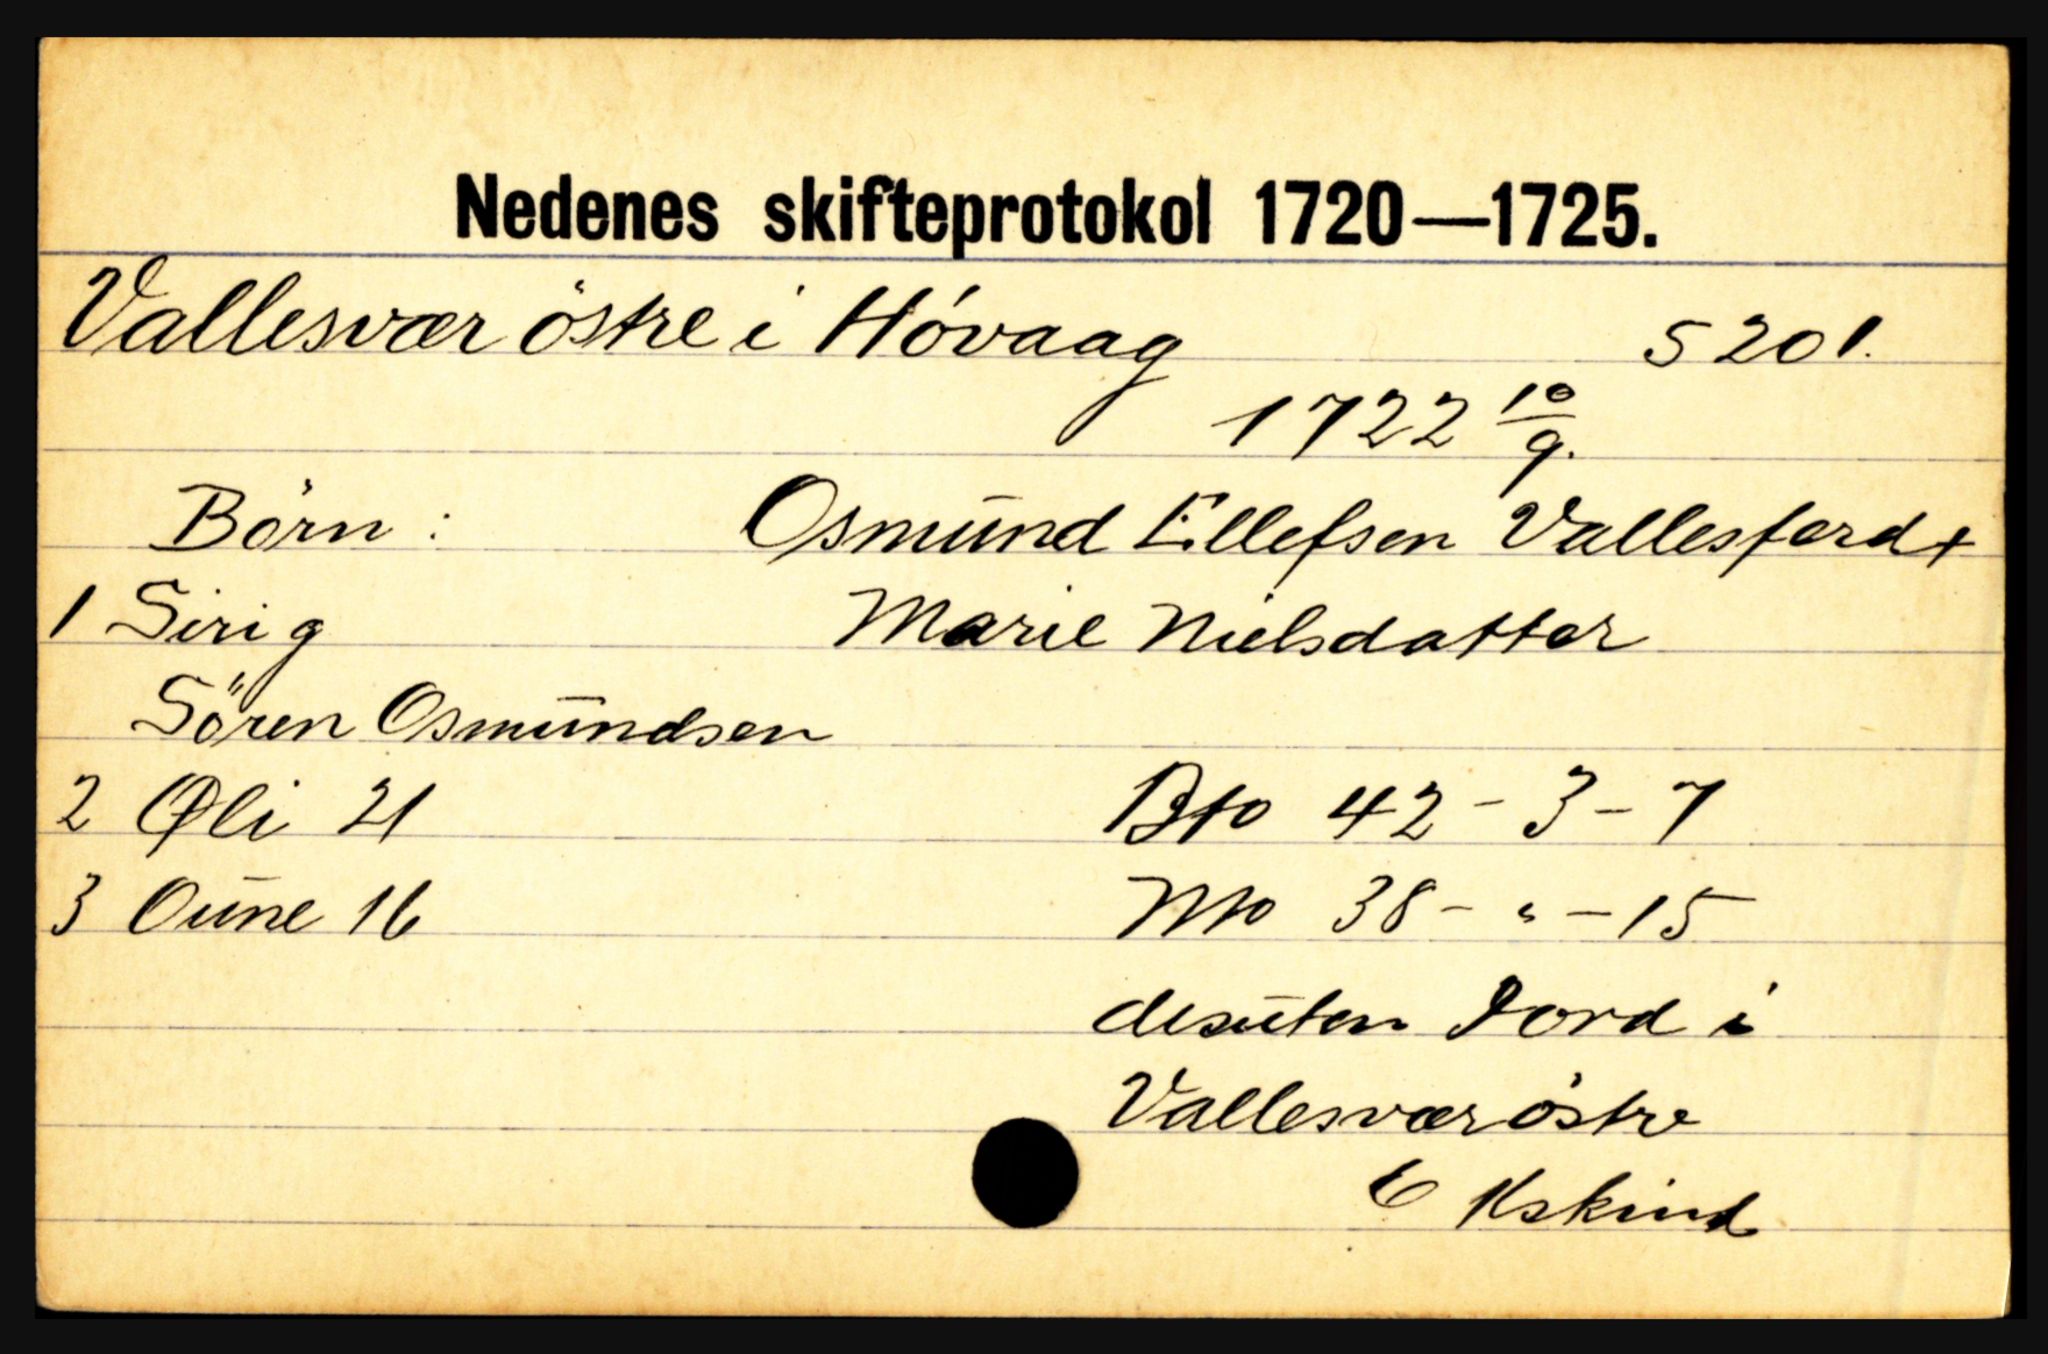 Nedenes skifteprotokol 1720—1725.
Vallesvær östre i Hóvaag 5201.
1722 10/9.
Börn : Osmund Ellefsen Vallesferd +
1 Sirig Marie Nielsdatter
Sören Osmundsen
2 Øli 21 Bto 42 - 3 - 7
3 Oune 16 Nto 38 - " - 15
desuten Jord i
Vallesvær östre
6 Kskind